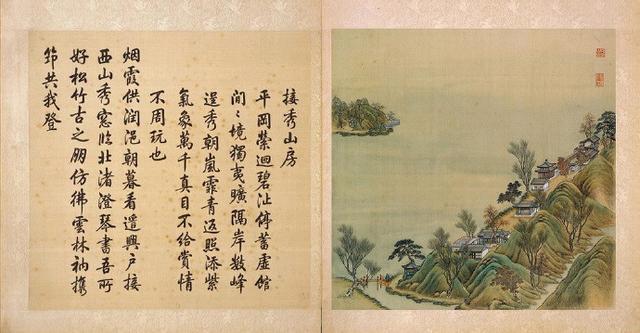 接秀山房
平岡縈迴碧沚停蓄虛館
間〻境獨夷曠隔岸數峰
逞秀朝嵐霏青返照添紫
氣象萬千真目不給賞情
不周玩也
烟霞供潤浥朝暮看遙興戶接
西山秀窓臨北渚澄琴書吾所
好松竹古之朋仿彿雲林衲携
筇共我登